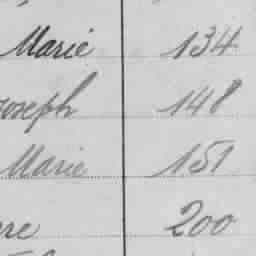 Marie 134
Joseph 148
Marie 151
re 200